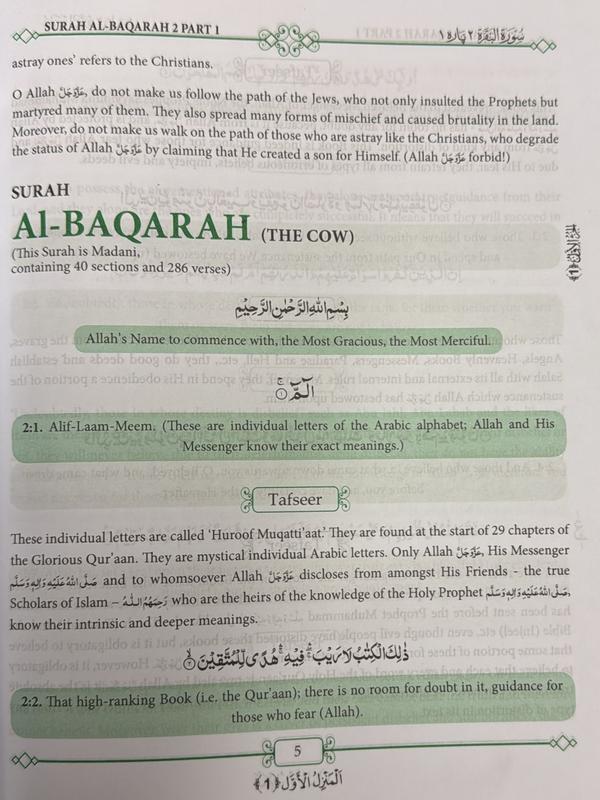 SURAH AL-BAQARAH 2 PART 1
سُوْرَةُ الْبَقَرَة ٢ پارہ ١
astray ones’ refers to the Christians.
O Allah عَزَّوَجَلَّ, do not make us follow the path of the Jews, who not only insulted the Prophets but
martyred many of them. They also spread many forms of mischief and caused brutality in the land.
Moreover, do not make us walk on the path of those who are astray like the Christians, who degrade
the status of Allah عَزَّوَجَلَّ by claiming that He created a son for Himself. (Allah عَزَّوَجَلَّ forbid!)
SURAH
Al-BAQARAH (THE COW)
(This Surah is Madani,
containing 40 sections and 286 verses)
بِسْمِ اللهِ الرَّحْمٰنِ الرَّحِيْمِ
Allah’s Name to commence with, the Most Gracious, the Most Merciful.
الٓمّٓ ۚ ۝١
2:1. Alif-Laam-Meem. (These are individual letters of the Arabic alphabet; Allah and His
Messenger know their exact meanings.)
Tafseer
These individual letters are called ‘Huroof Muqatti’aat.’ They are found at the start of 29 chapters of
the Glorious Qur’aan. They are mystical individual Arabic letters. Only Allah عَزَّوَجَلَّ, His Messenger
صَلَّى اللهُ عَلَيْهِ وَاٰلِهٖ وَسَلَّم and to whomsoever Allah عَزَّوَجَلَّ discloses from amongst His Friends - the true
Scholars of Islam – رَحِمَهُمُ اللهُ who are the heirs of the knowledge of the Holy Prophet صَلَّى اللهُ عَلَيْهِ وَاٰلِهٖ وَسَلَّم,
know their intrinsic and deeper meanings.
ذٰلِكَ الْكِتٰبُ لَا رَيْبَ ۛ فِيْهِ ۛ هُدًى لِّلْمُتَّقِيْنَ ۝٢
2:2. That high-ranking Book (i.e. the Qur’aan); there is no room for doubt in it, guidance for
those who fear (Allah).
5
اَلْمَنْزِلُ الْاَوَّل ﴿1﴾